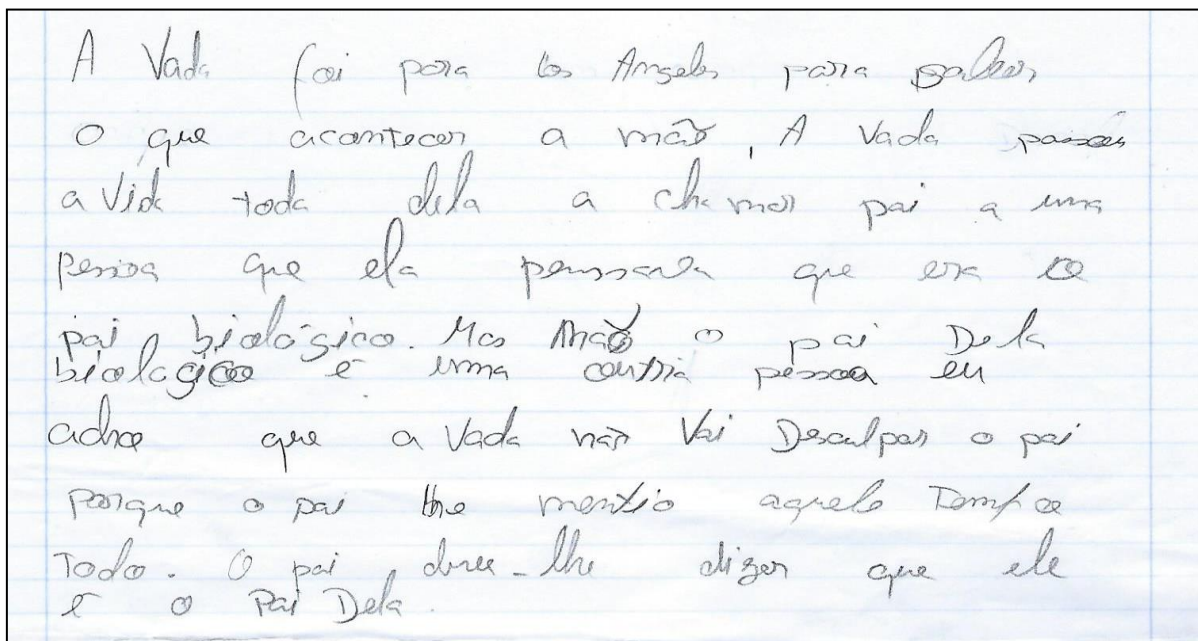 A Vada foi para Los Angeles para saber
o que acontecer a mãe, A Vada passou
a vida toda dela a chamar pai a uma
pessoa que ela penssava que era o
pai biológico. Mas não o pai Dela
biologico é uma outra pessoa eu
acho que a Vada não Vai Desculpar o pai
porque o pai lhe mentio aquele Tempo
Todo. O pai deve-lhe dizer que ele
é o Pai Dela.